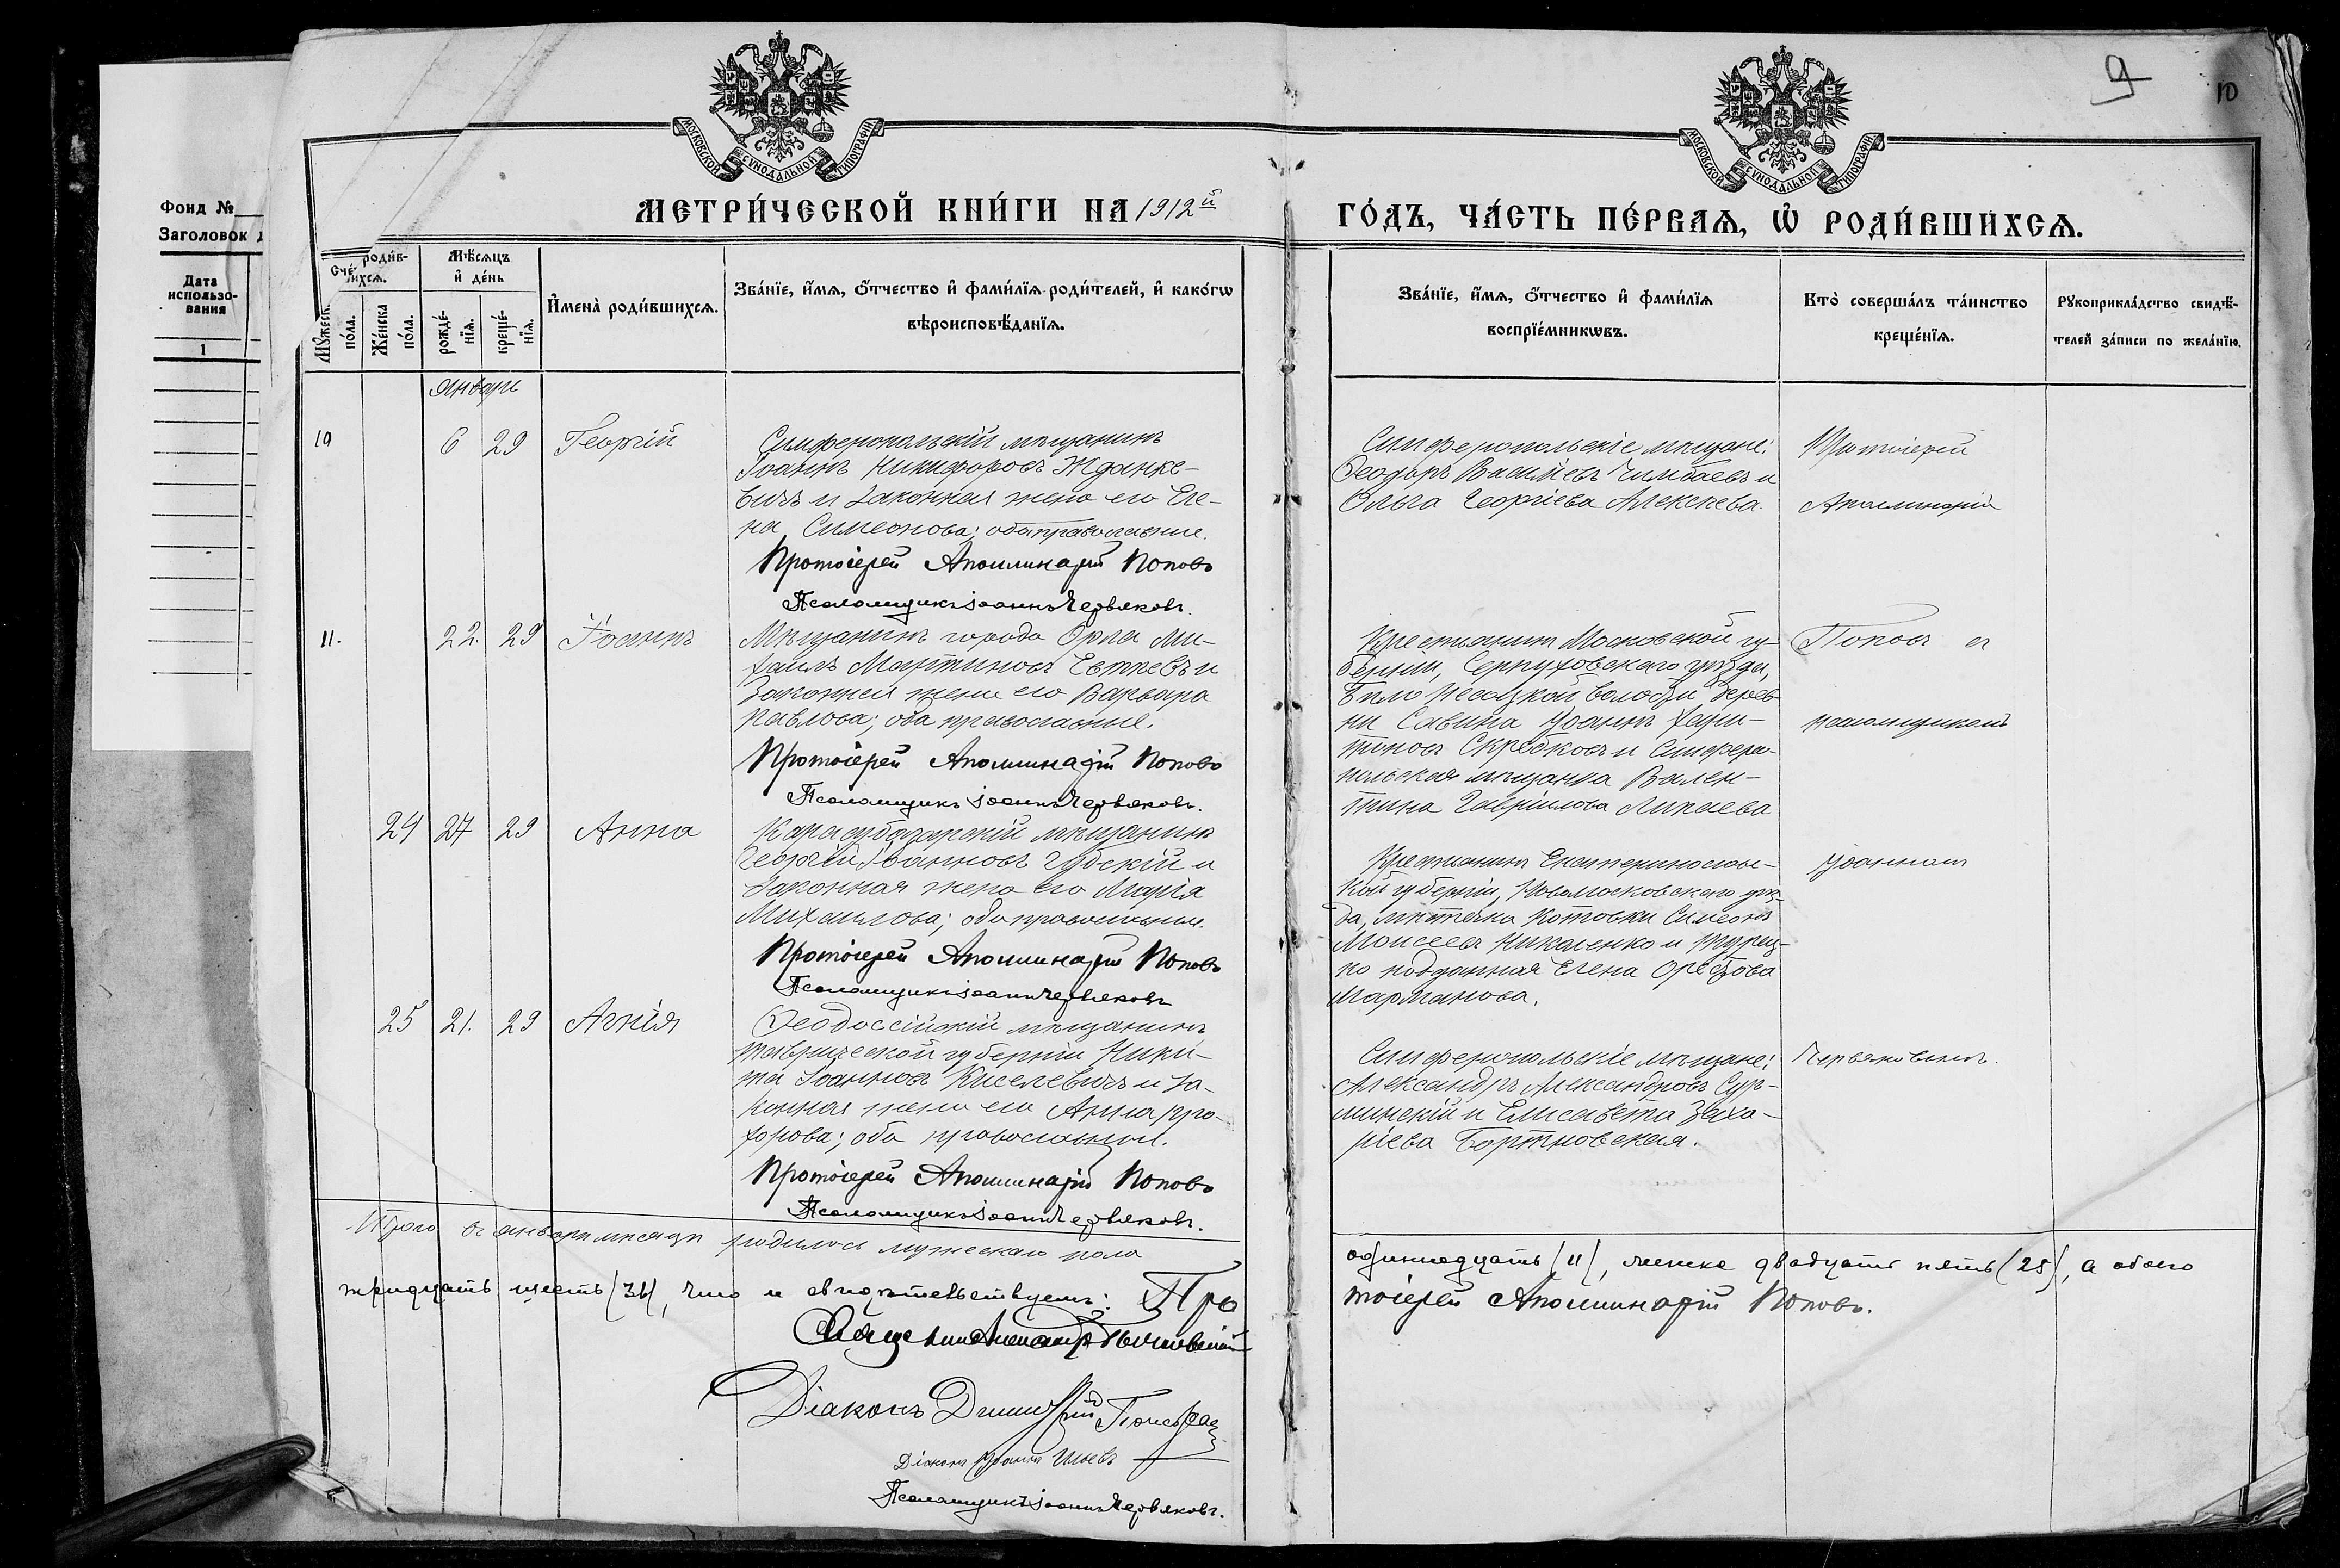 9
10
Фонд №
Заголовок
Дата
использо-
вания
1
МОСКОВСКОЙ СѴНОДАЛЬНОЙ ТИПОГРАФІИ
МОСКОВСКОЙ СѴНОДАЛЬНОЙ ТИПОГРАФІИ
МЕТРИ́ЧЕСКОЙ КНИ́ГИ НА 1912й
ГО́ДЪ, ЧА́СТЬ ПЕ́РВАѦ, Ѡ҆ РОДИ́ВШИХСѦ.
Сче́ роди́в-
ихсѧ.
Мꙋжеск.
по́ла.
Же́нска
по́ла.
Мѣ́сѧцъ
и҆ де́нь
рожде́-
нїѧ.
креще́-
нїѧ.
И҆мена̀ роди́вшихсѧ.
Зва́нїе, и҆́мѧ, ѻ҆́тчество и҆ фами́лїѧ роди́телей, и҆ како́гѡ
вѣроисповѣ́данїѧ.
Зва́нїе, и҆́мѧ, ѻ҆́тчество и҆ фами́лїѧ
воспрїе́мникѡвъ.
Кто̀ соверша́лъ та́инство
креще́нїѧ.
Рꙋкоприкла́дство свидѣ́-
телей за́писи по жела́нїю.
Январь
10 6 29 Георгій
Симферопольскій мѣщанинъ
Іоаннъ Никифоровъ Жданке-
вичъ и законная жена его Еле-
на Симеонова; оба православные.
Протоіерей Аполлинарій Поповъ
Псаломщикъ Іоаннъ Червяковъ.
Симферопольскіе мѣщане:
Ѳеодоръ Васильевъ Чимбаевъ и
Ольга Георгіева Алексеева.
Протоіерей
Аполлинарій
11. 22. 29 Іоаннъ
Мѣщанинъ города Орла Ми-
хаилъ Мартиновъ Евтѣевъ и
законная жена его Варвара
Павлова; оба православные.
Протоіерей Аполлинарій Поповъ
Псаломщикъ Іоаннъ Червяковъ.
Крестьянинъ Московской гу-
берніи, Серпуховскаго уѣзда,
волости дерев-
ни Савина Іоаннъ Хари-
тоновъ Скребковъ и Симферо-
польская мѣщанка Вален-
тина Гавріилова
Поповъ съ
псаломщикомъ
24 27 29 Анна
Карасубазарскій мѣщанинъ
Георгій Іоанновъ Губскій и
законная жена его Марія
Михаилова; оба православные.
Протоіерей Аполлинарій Поповъ
Псаломщикъ Іоаннъ Червяковъ
Крестьянинъ Екатеринослав-
кой губерніи, Новомосковскаго уѣз-
да, мѣстечка Котовки Симеонъ
Моисеевъ Николенко и турец-
ко подданная Елена Орестова
Марманова.
Іоанномъ
25 21. 29 Агнія
Ѳеодоссійскій мѣщанинъ
Таврической губерніи Ники-
та Іоанновъ Киселевичъ и за-
конная жена его Анна Про-
хорова; оба православные.
Протоіерей Аполлинарій Поповъ
Псаломщикъ Іоаннъ Червяковъ.
Симферопольскіе мѣщане:
Александръ Александровъ Сур-
минскій и Елисавета Заха-
ріева Бортновская.
Червяковымъ.
Итого въ январѣ мѣсяцѣ родилось мужескаго пола
одиннадцать (11), женска двадцать пять (25), а обоего
тридцать шесть (36), что и свидѣтельствуемъ: Про
тоіерей Аполлинарій Поповъ.
Священникъ Александръ
Діаконъ Димитрій
Діаконъ Іоаннъ
Псаломщикъ Іоаннъ Червяковъ.